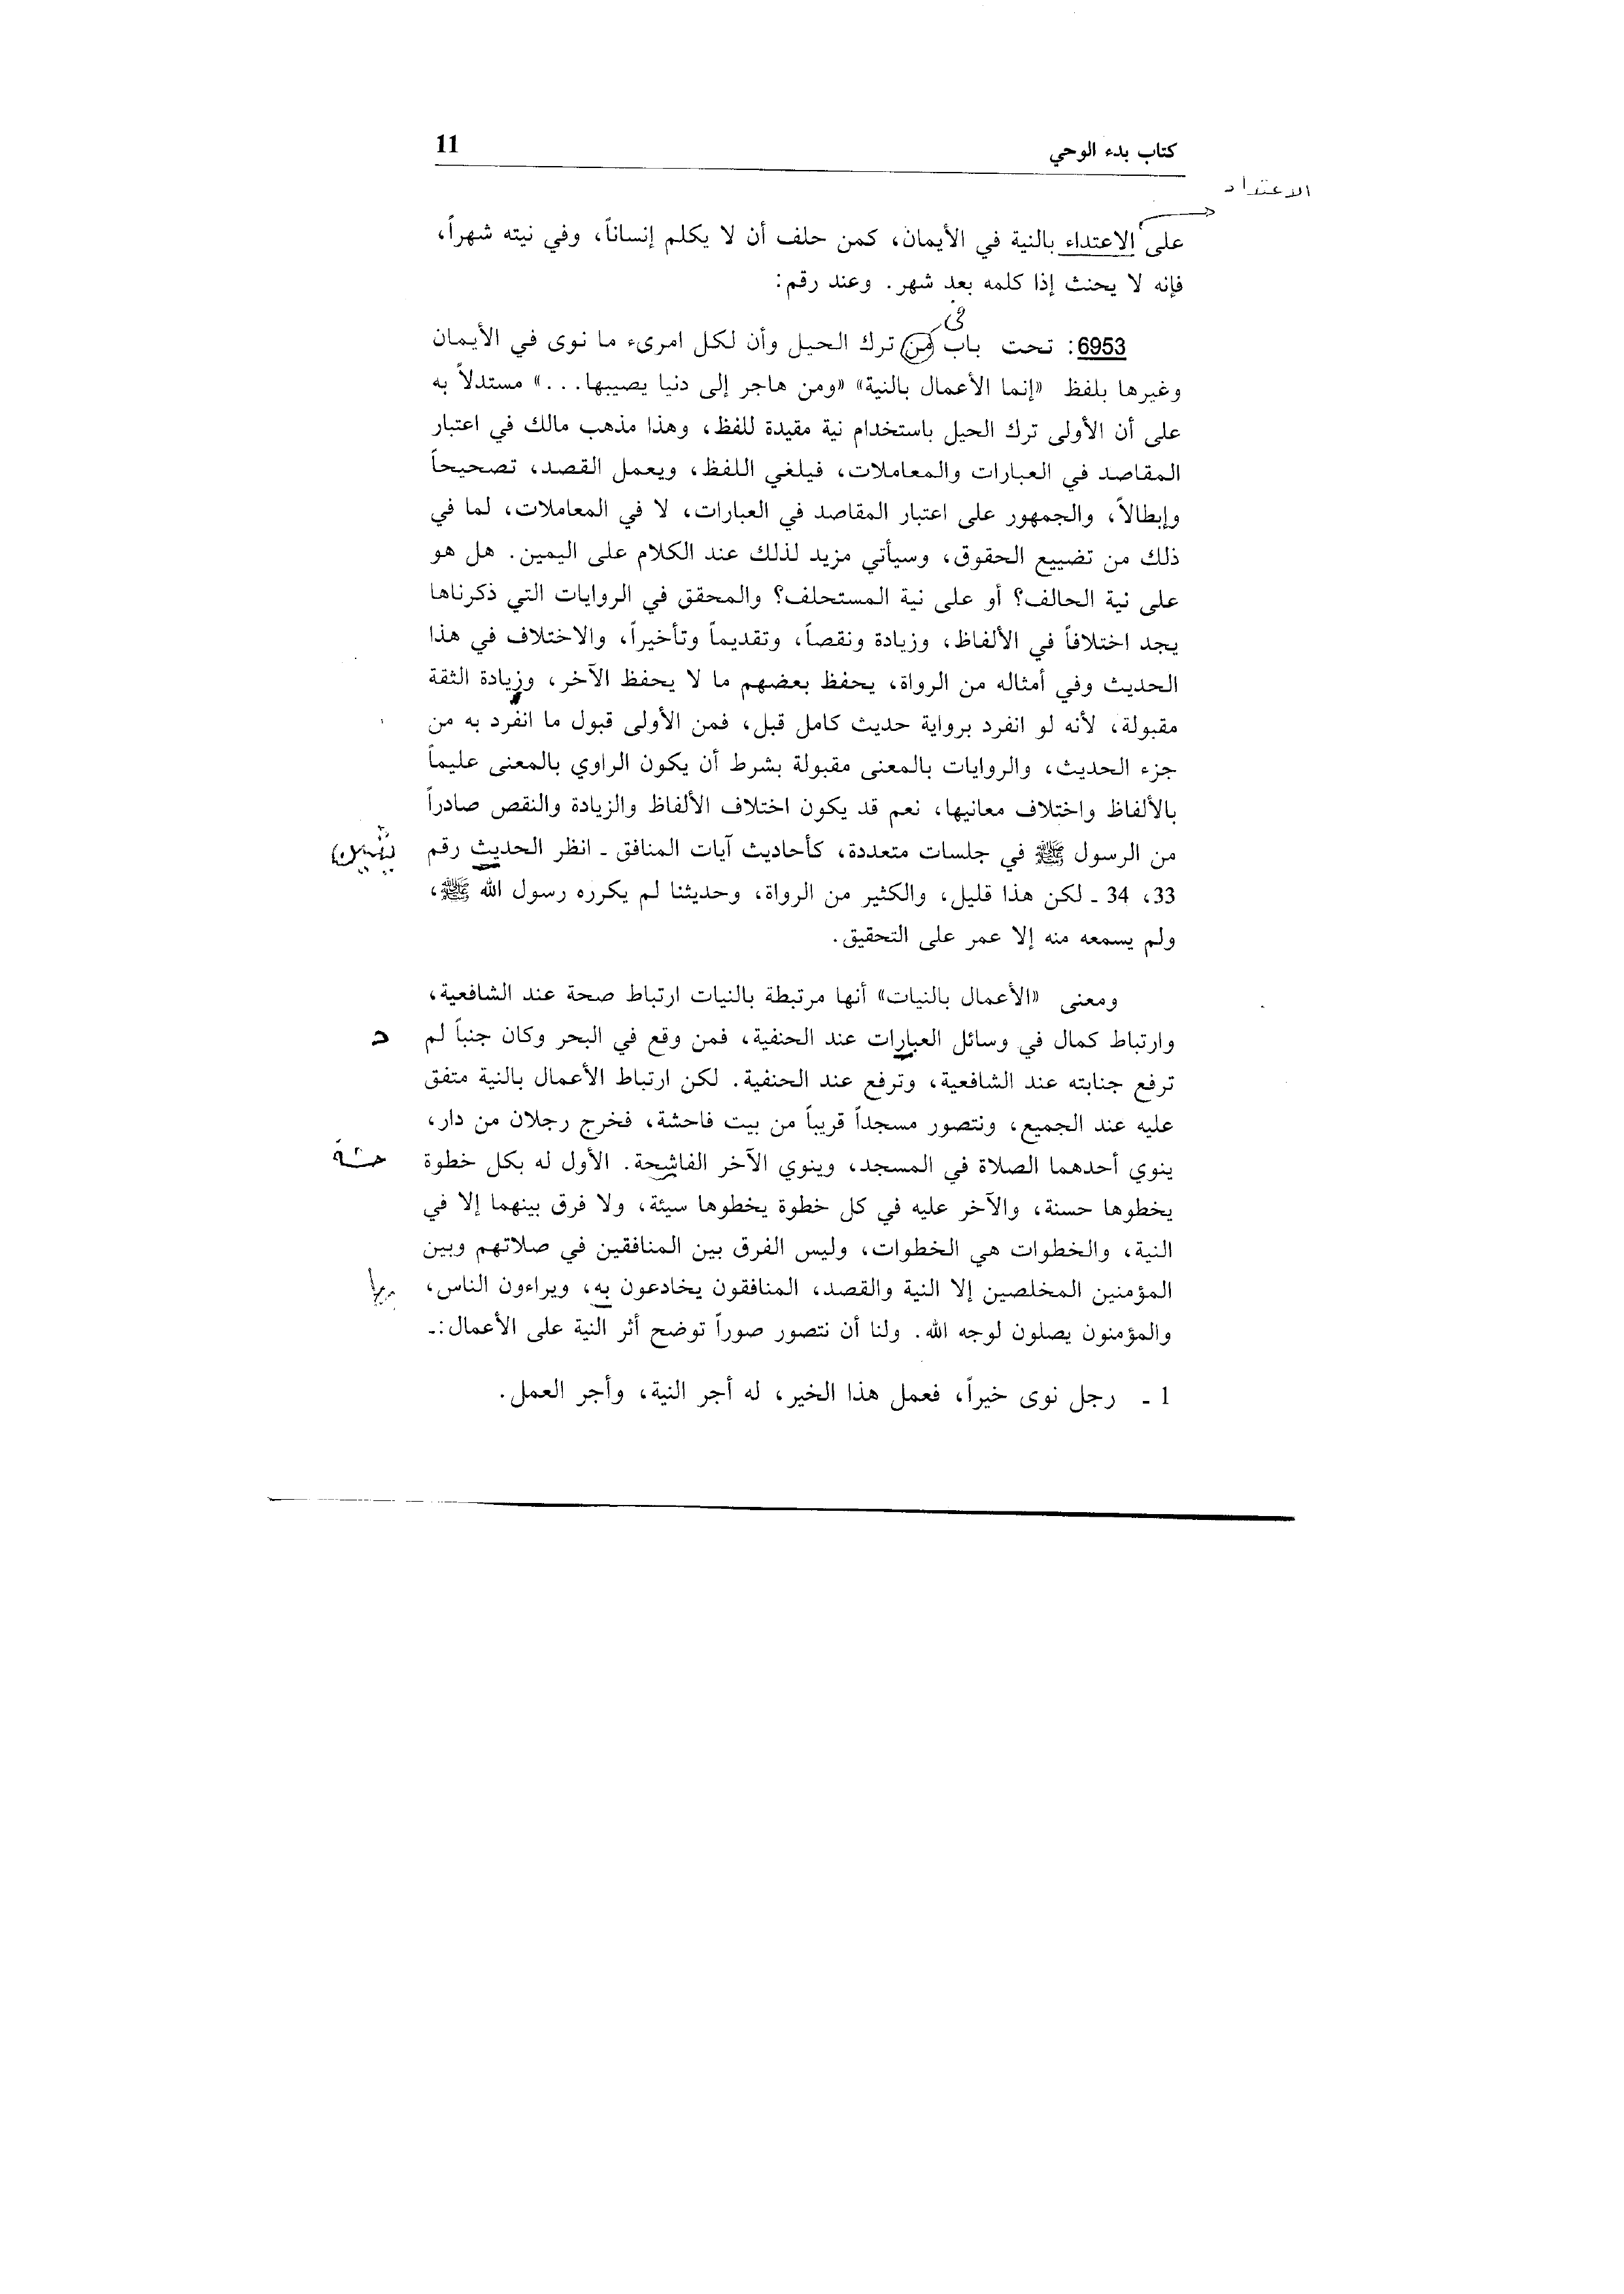 كتاب بدء الوحي 11
الاعتداد
على الاعتداء بالنية في الأيمان، كمن حلف أن لا يكلم إنساناً، وفي نيته شهراً،
فإنه لا يحنث إذا كلمه بعد شهر. وعند رقم:
في
6953: تحت باب من ترك الحيل وأن لكل امرىء ما نوى في الأيمان
وغيرها بلفظ «إنما الأعمال بالنية» «ومن هاجر إلى دنيا يصيبها...» مستدلاً به
على أن الأولى ترك الحيل باستخدام نية مقيدة للفظ، وهذا مذهب مالك في اعتبار
المقاصد في العبارات والمعاملات، فيلغي اللفظ، ويعمل القصد، تصحيحاً
وإبطالاً، والجمهور على اعتبار المقاصد في العبارات، لا في المعاملات، لما في
ذلك من تضييع الحقوق، وسيأتي مزيد لذلك عند الكلام على اليمين. هل هو
على نية الحالف؟ أو على نية المستحلف؟ والمحقق في الروايات التي ذكرناها
يجد اختلافاً في الألفاظ، وزيادة ونقصاً، وتقديماً وتأخيراً، والاختلاف في هذا
الحديث وفي أمثاله من الرواة، يحفظ بعضهم ما لا يحفظ الآخر، وزيادة الثقة
مقبولة، لأنه لو انفرد برواية حديث كامل قبل، فمن الأولى قبول ما انفرد به من
جزء الحديث، والروايات بالمعنى مقبولة بشرط أن يكون الراوي بالمعنى عليماً
بالألفاظ واختلاف معانيها، نعم قد يكون اختلاف الألفاظ والزيادة والنقص صادراً
من الرسول ﷺ في جلسات متعددة، كأحاديث آيات المنافق ـ انظر الحديث رقم
33، 34 ـ لكن هذا قليل، والكثير من الرواة، وحديثنا لم يكرره رسول الله ﷺ،
ولم يسمعه منه إلا عمر على التحقيق.
ومعنى «الأعمال بالنيات» أنها مرتبطة بالنيات ارتباط صحة عند الشافعية،
وارتباط كمال في وسائل العبارات عند الحنفية، فمن وقع في البحر وكان جنباً لم د
ترفع جنابته عند الشافعية، وترفع عند الحنفية. لكن ارتباط الأعمال بالنية متفق
عليه عند الجميع، ونتصور مسجداً قريباً من بيت فاحشة، فخرج رجلان من دار،
ينوي أحدهما الصلاة في المسجد، وينوي الآخر الفاشحة. الأول له بكل خطوة
يخطوها حسنة، والآخر عليه في كل خطوة يخطوها سيئة، ولا فرق بينهما إلا في
النية، والخطوات هي الخطوات، وليس الفرق بين المنافقين في صلاتهم وبين
المؤمنين المخلصين إلا النية والقصد، المنافقون يخادعون به، ويراءون الناس،
والمؤمنون يصلون لوجه الله. ولنا أن نتصور صوراً توضح أثر النية على الأعمال:ـ
1 ـ رجل نوى خيراً، فعمل هذا الخير، له أجر النية، وأجر العمل.